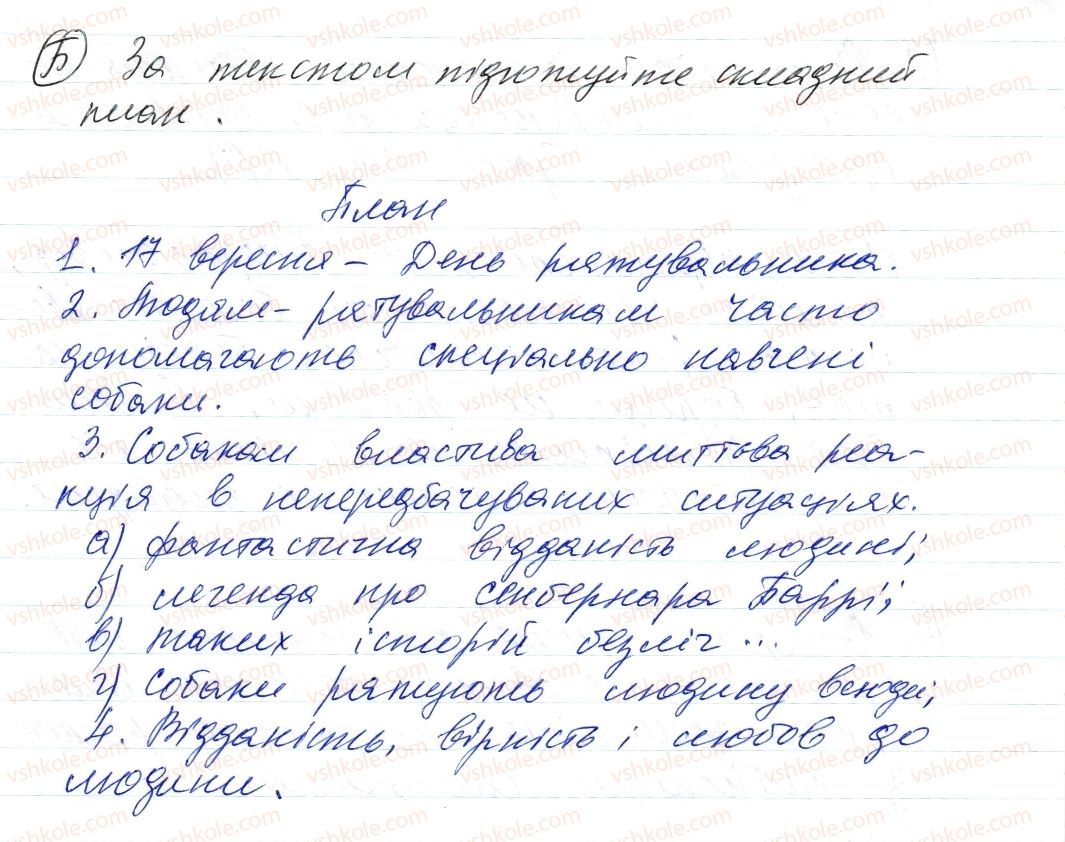 Б За текстом підготуйте складний
план.
План
1. 17 вересня – День рятувальника.
2. Людям-рятувальникам часто
допомагають спеціально навчені
собаки.
3. Собакам властива миттєва реа-
кція в непередбачуваних ситуаціях.
а) фантастична відданість людині;
б) легенда про сенбернара Баррі;
в) таких історій безліч...
г) Собаки рятують людину всюди;
4. Відданість, вірність і любов до
людини.